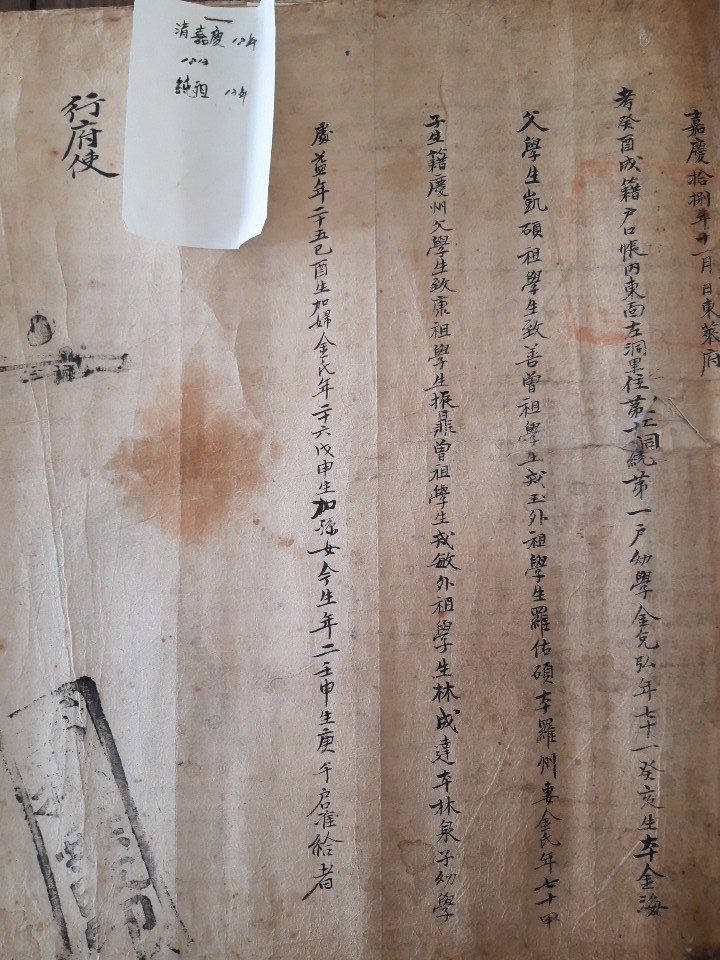 嘉慶拾捌年十一月 日東萊府
考癸酉成籍戶口帳內東面左洞里住第 統第一戶幼學金兌弘年七十一癸亥生本金海
父學生凱碩祖學生致善曾祖學生戎玉外祖學生羅佑碩本羅州妻金氏年七十甲
子生籍慶州父學生致康祖學生振鼎曾祖學生戎敏外祖學生林成達本林泉子幼學
處益年二十五己酉生加婦金氏年二十六戊申生加孫女今生年二壬申生庚午戶准給者
行府使
清嘉慶 18年
1813
純祖 13年